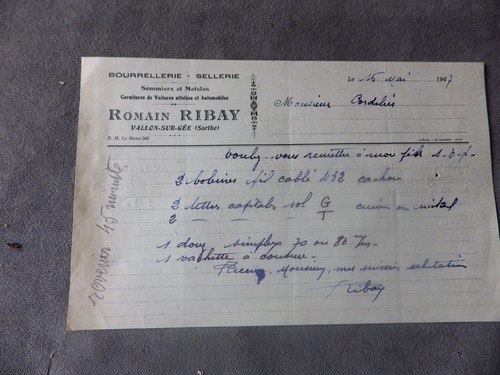 BOURRELLERIE - SELLERIE
Sommiers et Matelas
Garnitures de Voitures attelées et Automobiles
ROMAIN RIBAY
VALLON-SUR-GÉE (Sarthe)
R. M. Le Mans
le 15 Mai 1947
Monsieur Cordelier
Voulez-vous remettre à mon fils S.V.P.
2 bobines fil cablé 432 cachou
2 lettres capitales sol G cuivre ou métal
2 — — — T
1 douz 70 ou 80
1 vachette à couture
Recevez, Monsieur, mes sincères salutations
Ribay
revenir 45 minute